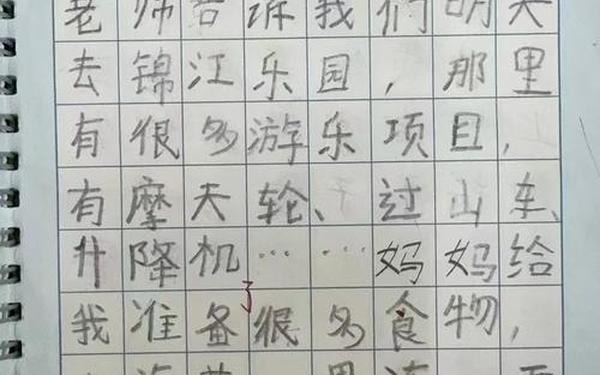 老师告诉我们明天
去锦江乐园，那里
有很多游乐项目，
有摩天轮、过山车、
升降机……妈妈给
了
我准备很多食物，